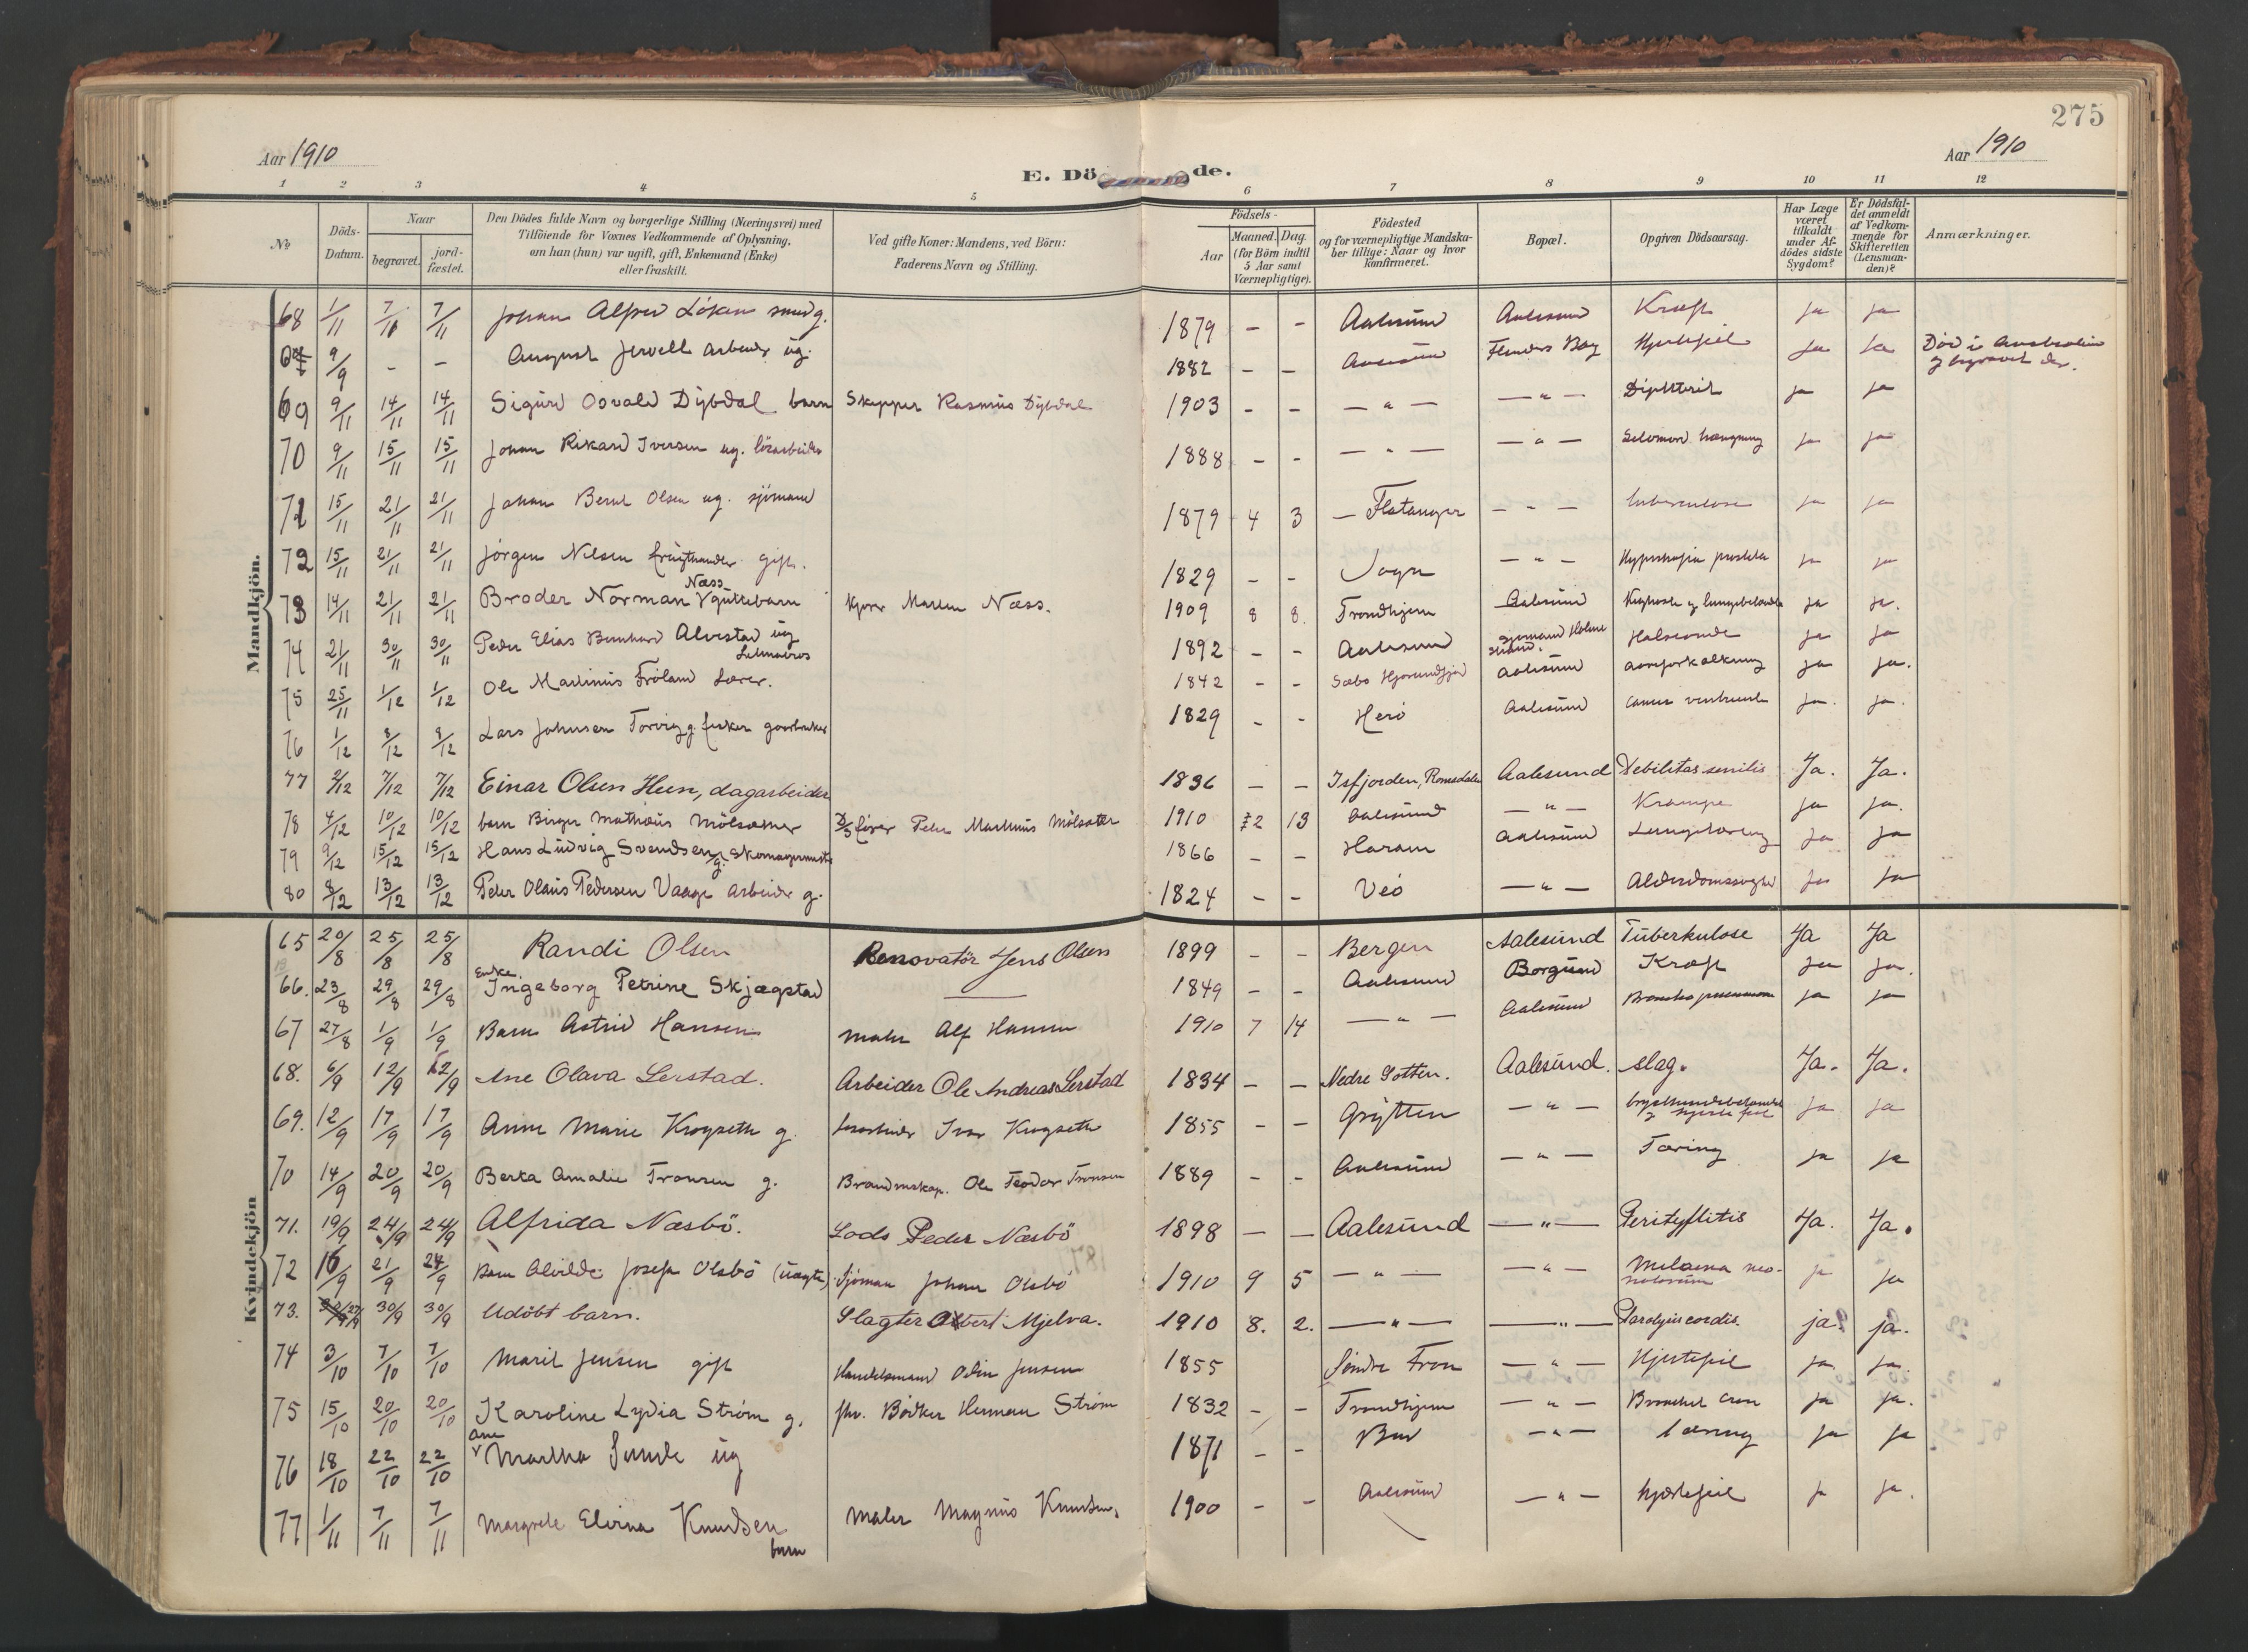 275
Aar 1910
E. Dö de.
Aar 1910
1 2 3 4 5 6 7 8 9 10 11 12
No
Döds-Datum.
Naar
begravet.
jord-fæstet.
Den Dödes fulde Navn og borgerlige Stilling (Næringsvei) med
Tilföiende for Voxnes Vedkommende af Oplysning,
om han (hun) var ugift, gift, Enkemand (Enke)
eller fraskilt.
Ved gifte Koner: Mandens, ved Börn:
Faderens Navn og Stilling.
Födsels-
Aar
Maaned. Dag.
(for Börn indtil
5 Aar samt
Værnepligtige).
Födested
og for værnepligtige Mandska-
ber tillige: Naar og hvor
konfirmeret.
Bopæl.
Opgiven Dödsaarsag.
Har Læge
været
tilkaldt
under Af-
dödes sidste
Sygdom?
Er Dödsfal-
det anmeldt
af Vedkom-
mende for
Skifteretten
(Lensman-
den)?
Anmærkninger.
Mandkjön.
68 1/11 7/11 7/11 Johan Alfred smed g. 1879 - - Aalesund Aalesund Kræft ja ja
9/9 - - August Jervell arbeider ug. 1882 - - Aalesund Flinders Bay Hjertefeil ja ja Död i Australien
og begravet der.
69 9/11 14/11 14/11 Sigurd Osvald Dybdal barn Skipper Rasmus Dybdal 1903 - - — " — — " — Diphterit ja ja
70 9/11 15/11 15/11 Johan Rikard Iversen ug. lösarbeider 1888 - - — " — — " — Selvmord hængning ja ja
71 15/11 21/11 21/11 Johan Bernt Olsen ug. sjömand 1879 4 3 — Flatanger — " — tuberculose ja ja
72 15/11 21/11 21/11 Jörgen Nilsen frugthandler gift. 1829 - - Sogn — " — Hypertrofia prostata ja ja
73 14/11 21/11 21/11 Broder Norman Næss guttebarn Kjører Martin Næss. 1909 8 8. Trondhjem Aalesund Kighoste og lungebetændelse ja ja.
74 21/11 30/11 30/11 Peder Elias Bernhard Alvestad ug 1892 - - Aalesund Halsonde ja ja
75 25/11 1/12 1/12 Ole Martinus Fröland Lærer. 1842 - - Sæbö Hjörundfjord Aalesund aareforkalkning ja ja.
76 1/12 8/12 8/12 Lars Johnsen Torvig g. fisker gaardbruker 1829 - - Herö Aalesund cancer ventriculi ja. ja.
77 2/12 7/12 7/12 Einar Olsen Heen, dagarbeider 1836 - - Isfjorden, Romsdalen Aalesund Debilitas senilis Ja. Ja.
78 4/12 10/12 10/12 barn Birger Mathæus Mölsæter D/S förer Peter Martinus Mölsæter 1910 2 13 Aalesund — " — Krampe ja ja.
79 9/12 15/12 15/12 Hans Ludvig Svendsen g. Skomagermester 1866 - - Haram Aalesund ja ja
80 8/12 13/12 13/12 Peder Olaus Pedersen Vaage arbeider g. 1824 - - Veö — " — Alderdomssvaghed ja ja
Kvindekjön
65 20/8 25/8 25/8 Randi Olsen Renovatör Jens Olsen 1899 - - Bergen Aalesund Tuberkulose Ja Ja
66. 23/8 29/8 29/8 Enke Ingeborg Petrine Skjægstad — 1849 - - Aalesund Borgund Kræft ja ja.
67 27/8 1/9 1/9 Barn Astrid Hansen maler Alf Hansen 1910 7 14 — " — Aalesund Broncho pneumoni ja ja
68. 6/9 12/9 12/9 Ane Olava Lerstad. Arbeider Ole Andreas Lerstad 1834 - - Nedre Gotten. Aalesund. slag. Ja. Ja.
69. 12/9 17/9 17/9 Anne Marie Krogseth g. løsarbeider Ivar Krogseth 1855 - - Grytten — " — brysthindebetændelse
og hjerte feil ja ja
70 14/9 20/9 20/9 Berta Amalie Tronsen g. Brandmskap. Ole Teodor Tronsen 1889 - - Aalesund — " — Tæring ja ja
71. 19/9 24/9 24/9 Alfrida Næsbö. Lods Peder Næsbö 1898 - - Aalesund — " — Perityflitis Ja. Ja.
72 16/9 21/9 24/9 Barn Alvilde Josefa Olsbö (uægte) Sjöman Johan Olsbö 1910 9 5 — " — — " — Melaena neo-
natorum ja ja
73. 27/9 30/9 30/9 Udöbt barn. Slagter Albert Mjelva. 1910 8. 2. — " — — " — Paralysis cordis. ja? ja.
74 3/10 7/10 7/10 Marit Jensen gift Handelsmand Odin Jensen 1855 Söndre Fron — " — Hjertefeil ja ja.
75 15/10 20/10 20/10 Karoline Lydia Ström g. fhv. Bödker Herman Ström 1832 - - Trondhjem — " — ja ja.
76 18/10 22/10 22/10 Ane Martha Sunde ug 1871 - - Bud — " — tæring ja ja
77 1/11 7/11 7/11 Margrete Elvina Knudsen barn Maler Magnus Knudsen. 1900 - - Aalesund — " — hjertefeil ja ja.